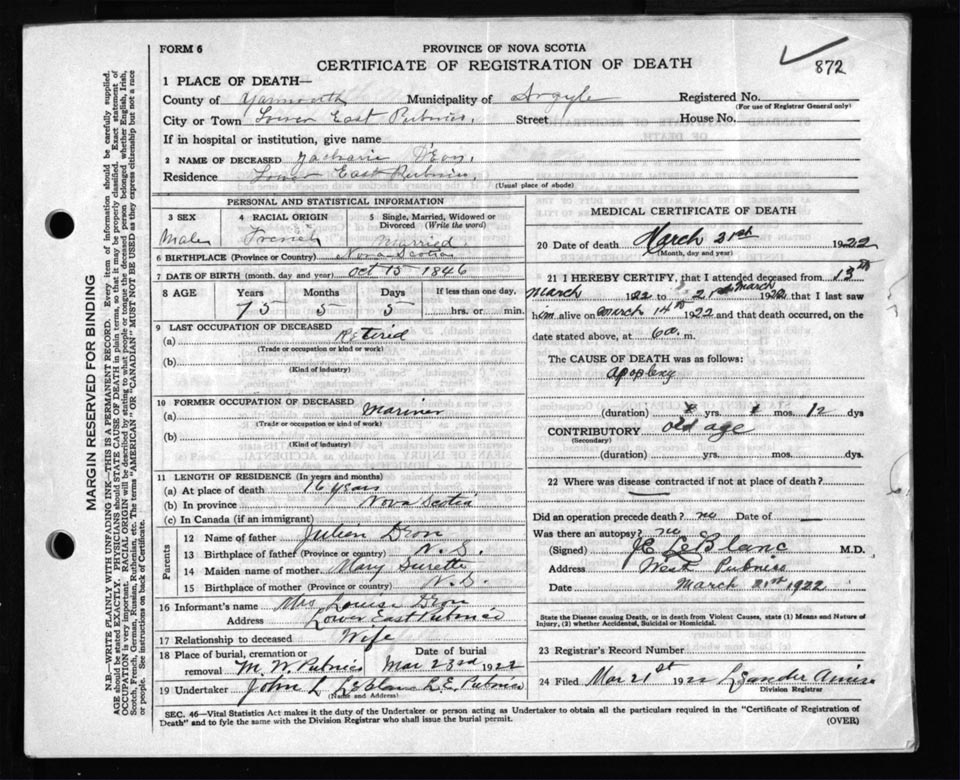 FORM 6
PROVINCE OF NOVA SCOTIA
CERTIFICATE OF REGISTRATION OF DEATH
872
1 PLACE OF DEATH—
County of Yarmouth Municipality of Argyle Registered No.
(For use of Registrar General only)
City or Town Lower East Pubnico, Street House No.
If in hospital or institution, give name
2 NAME OF DECEASED Zacharie D'Eon,
Residence Lower East Pubnico,
(Usual place of abode)
PERSONAL AND STATISTICAL INFORMATION
3 SEX 4 RACIAL ORIGIN 5 Single, Married, Widowed or Divorced (Write the word)
Male French Married
6 BIRTHPLACE (Province or Country) Nova Scotia
7 DATE OF BIRTH (month, day and year) Oct 15 1846
8 AGE Years Months Days If less than one day,
75 5 5 hrs. or min.
9 LAST OCCUPATION OF DECEASED
(a) Retired
(Trade or occupation or kind of work)
(b)
(Kind of industry)
10 FORMER OCCUPATION OF DECEASED
(a) Mariner
(Trade or occupation or kind of work)
(b)
(Kind of industry)
11 LENGTH OF RESIDENCE (In years and months)
(a) At place of death 76 years
(b) In province Nova Scotia
(c) In Canada (if an immigrant)
Parents
12 Name of father Julien Deon
13 Birthplace of father (Province or country) N. S.
14 Maiden name of mother Mary Surette
15 Birthplace of mother (Province or country) N. S.
16 Informant's name Mrs Louise Deon
Address Lower East Pubnico
17 Relationship to deceased Wife
18 Place of burial, cremation or removal M. W. Pubnico Date of burial Mar 23rd 1922
19 Undertaker John L LeBlanc L. E. Pubnico
(Name and Address)
MEDICAL CERTIFICATE OF DEATH
20 Date of death March 21st 1922
(Month, day and year)
21 I HEREBY CERTIFY, that I attended deceased from 13th
March 1922 to 21st March 1922 that I last saw
him alive on March 14th 1922 and that death occurred, on the
date stated above, at 6 a. m.
The CAUSE OF DEATH was as follows:
apoplexy
(duration) yrs. mos. 12 dys
CONTRIBUTORY old age
(Secondary)
(duration) yrs. mos. dys.
22 Where was disease contracted if not at place of death?
Did an operation precede death? no Date of —
Was there an autopsy? no
(Signed) J E LeBlanc M.D.
Address West Pubnico
Date March 21st 1922
State the Disease causing Death, or in death from Violent Causes, state (1) Means and Nature of Injury, (2) whether Accidental, Suicidal or Homicidal.
23 Registrar's Record Number
24 Filed Mar 21st 1922 Leander Amiro
Division Registrar
SEC. 46—Vital Statistics Act makes it the duty of the Undertaker or person acting as Undertaker to obtain all the particulars required in the "Certificate of Registration of
Death" and to fyle the same with the Division Registrar who shall issue the burial permit.
(OVER)
MARGIN RESERVED FOR BINDING
N.B.—WRITE PLAINLY WITH UNFADING INK—THIS IS A PERMANENT RECORD. Every item of information should be carefully supplied.
AGE should be stated EXACTLY. PHYSICIANS should STATE CAUSE OF DEATH in plain terms, so that it may be properly classified. Exact statement of
OCCUPATION is very important. RACIAL ORIGIN will be described by stating to what people or tongue the deceased person belonged whether English, Irish,
Scotch, French, German, Russian, Ruthenian, etc. The terms "AMERICAN" or "CANADIAN" MUST NOT BE USED as they express citizenship but not a race
or people. See instructions on back of Certificate.